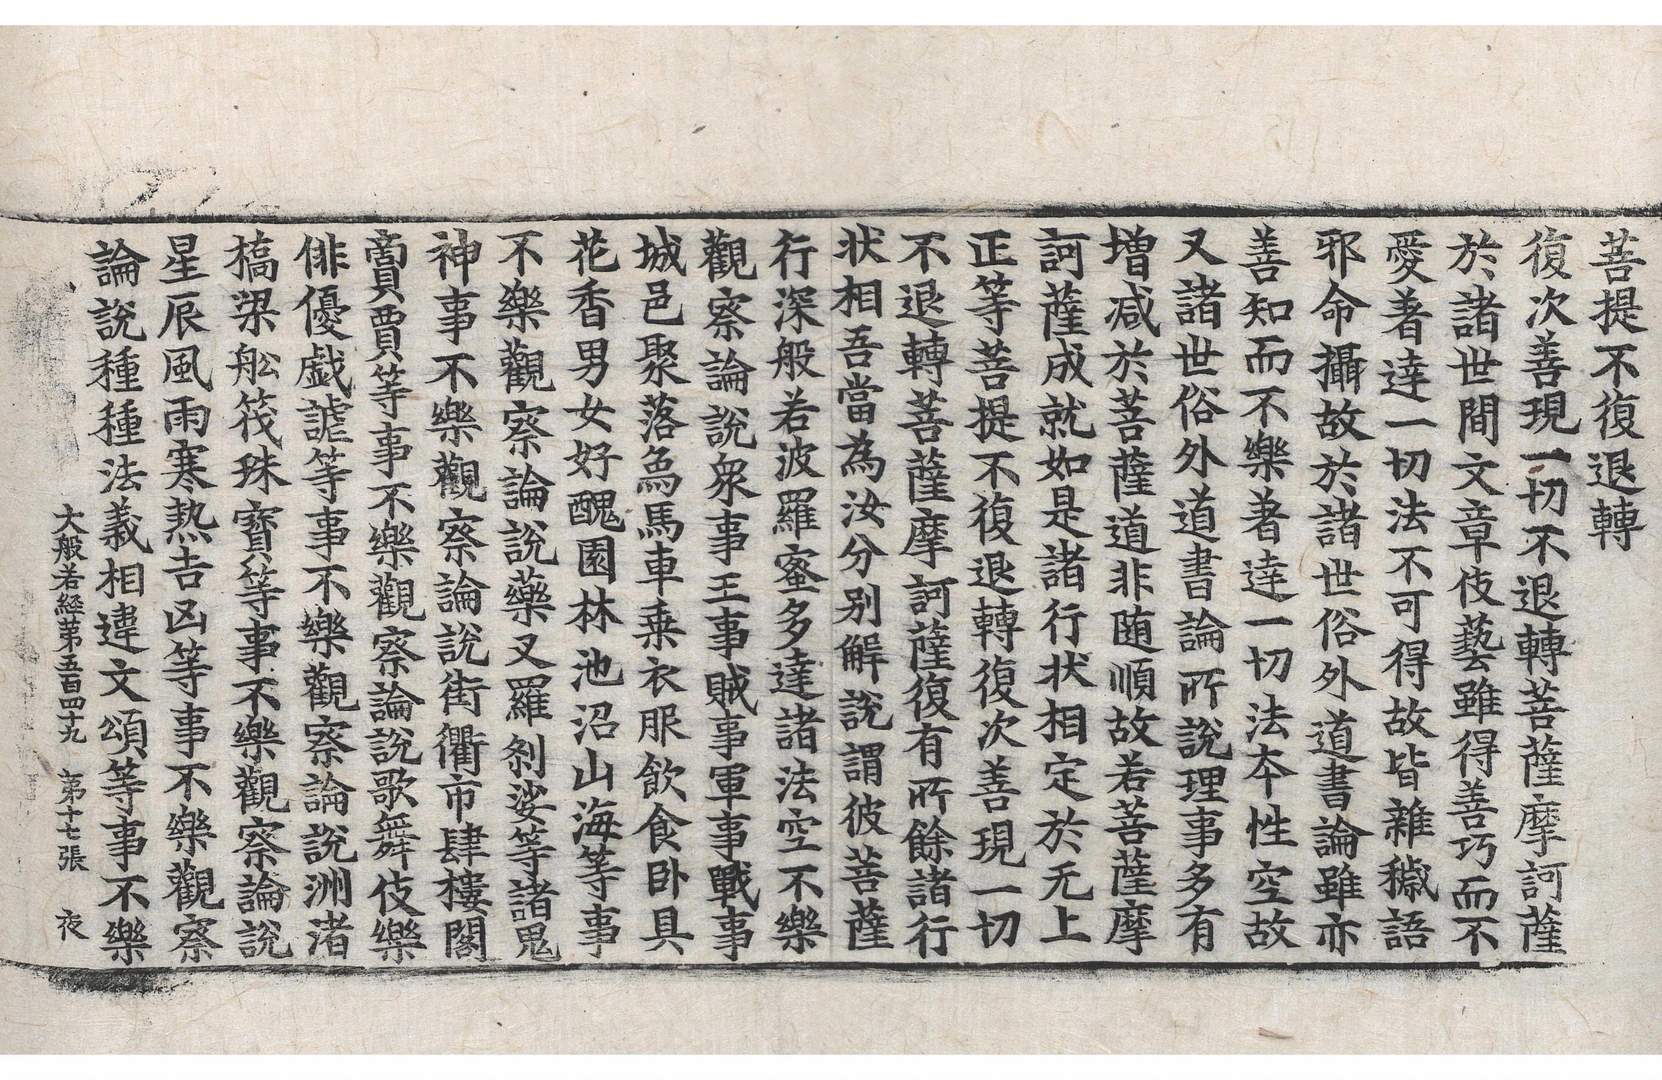 菩提不復退轉
復次善現一切不退轉菩薩摩訶薩
於諸世間文章伎藝雖得善巧而不
愛著達一切法不可得故皆雜穢語
邪命攝故於諸世俗外道書論雖亦
善知而不樂著達一切法本性空故
又諸世俗外道書論所說理事多有
增減於菩薩道非随順故若菩薩摩
訶薩成就如是諸行状相定於无上
正等菩提不復退轉復次善現一切
不退轉菩薩摩訶薩復有所餘諸行
状相吾當為汝分別解說謂彼菩薩
行深般若波羅蜜多達諸法空不樂
觀察論說衆事王事賊事軍事戰事
城邑聚落鳥馬車乗衣服飲食卧具
花香男女好醜園林池沼山海等事
不樂觀察論說藥叉羅刹娑等諸鬼
神事不樂觀察論說街衢市肆樓閣
賣賈等事不樂觀察論說歌舞伎樂
俳優戯謔等事不樂觀察論說洲渚
橋梁舩筏珠寶等事不樂觀察論說
星辰風雨寒熱吉凶等事不樂觀察
論說種種法義相違文頌等事不樂
大般若経第五百四十九 第十七張 夜